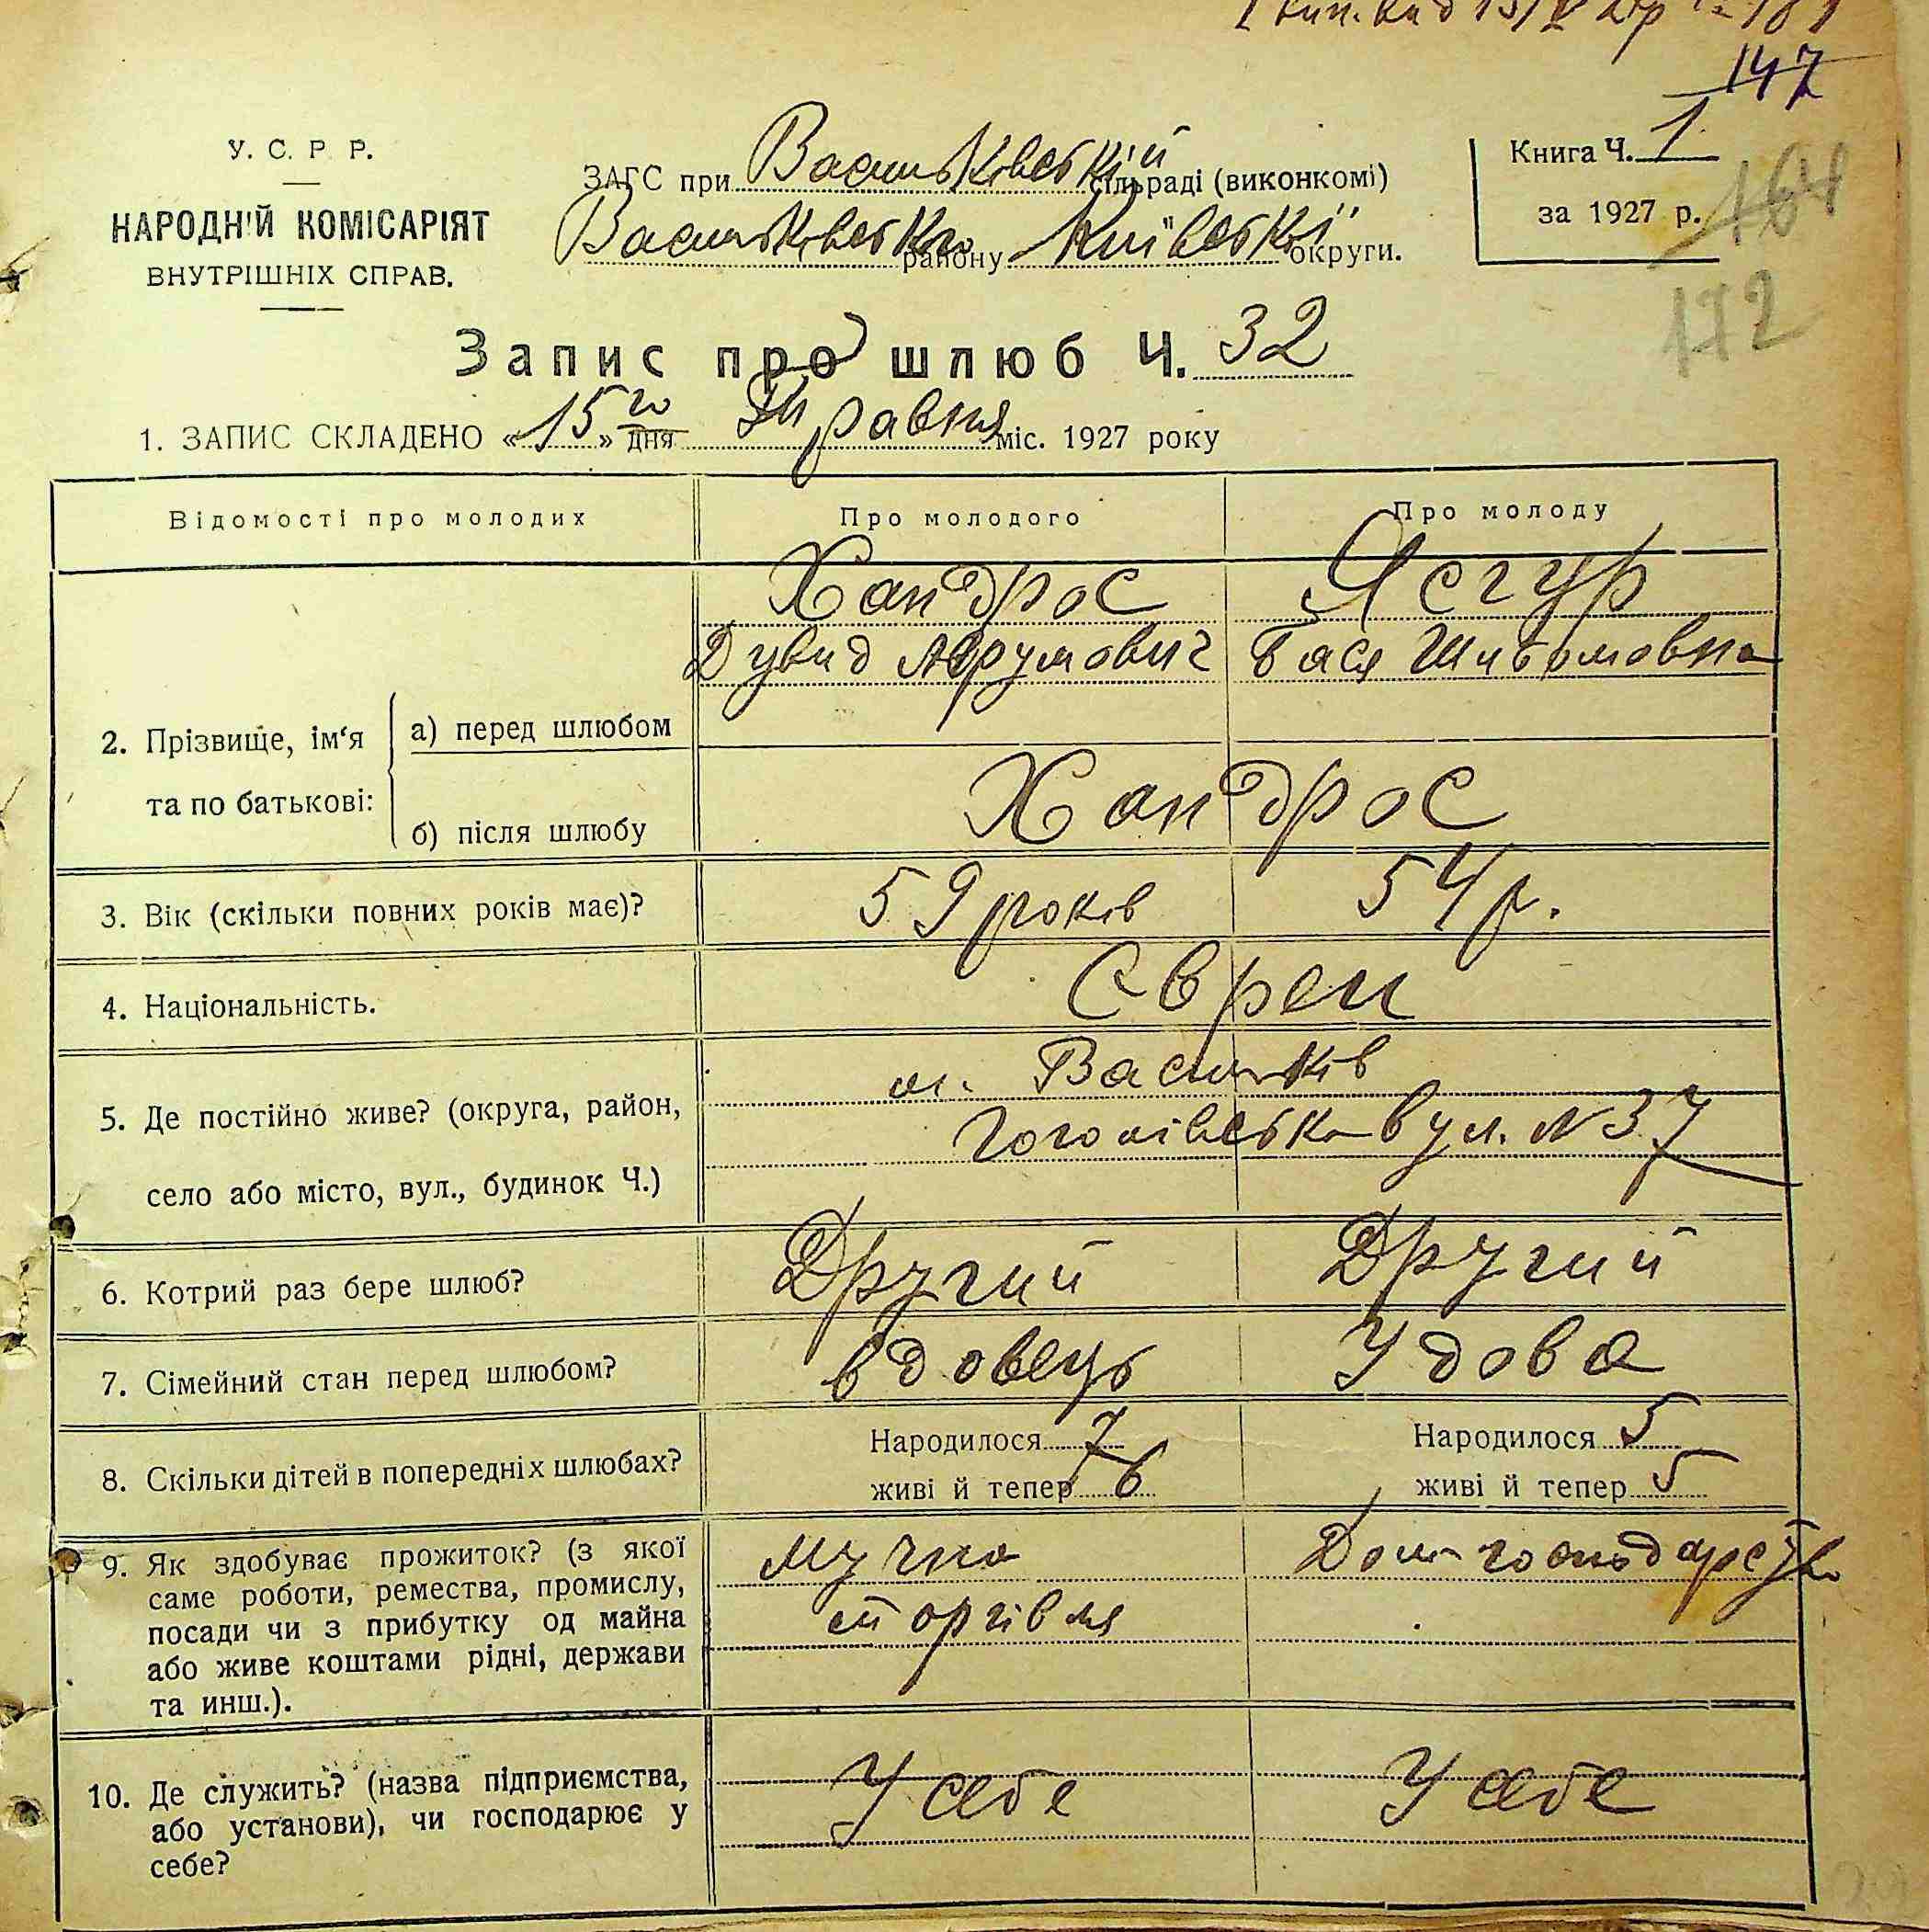 147
У. С. Р. Р.
НАРОДНІЙ КОМІСАРІЯТ
ВНУТРІШНІХ СПРАВ.
ЗАГС при Васильківській сільраді (виконкомі)
Васильківського району Київської округи.
Книга Ч. 1
за 1927 р.
164
172
Запис про шлюб Ч. 32
1. ЗАПИС СКЛАДЕНО «15го» дня Травня міс. 1927 року
Відомості про молодих
Про молодого
Про молоду
2. Прізвище, ім‘я та по батькові:
а) перед шлюбом
Хандрос
Дувид Аврумович
Ясгур
Бася
б) після шлюбу
Хандрос
3. Вік (скільки повних років має)?
59 років
54 р.
4. Національність.
Євреи
5. Де постійно живе? (округа, район,
село або місто, вул., будинок Ч.)
м. Васильків
Гоголівська вул. N 37
6. Котрий раз бере шлюб?
Другий
Другий
7. Сімейний стан перед шлюбом?
вдовець
Удова
8. Скільки дітей в попередніх шлюбах?
Народилося 7
живі й тепер 6
Народилося 5
живі й тепер 5
9. Як здобуває прожиток? (з якої
саме роботи, ремества, промислу,
посади чи з прибутку од майна
або живе коштами рідні, держави
та инш.).
Мучна
торгівля
Дом господарство
10. Де служить? (назва підприємства,
або установи), чи господарює у
себе?
У себе
У себе